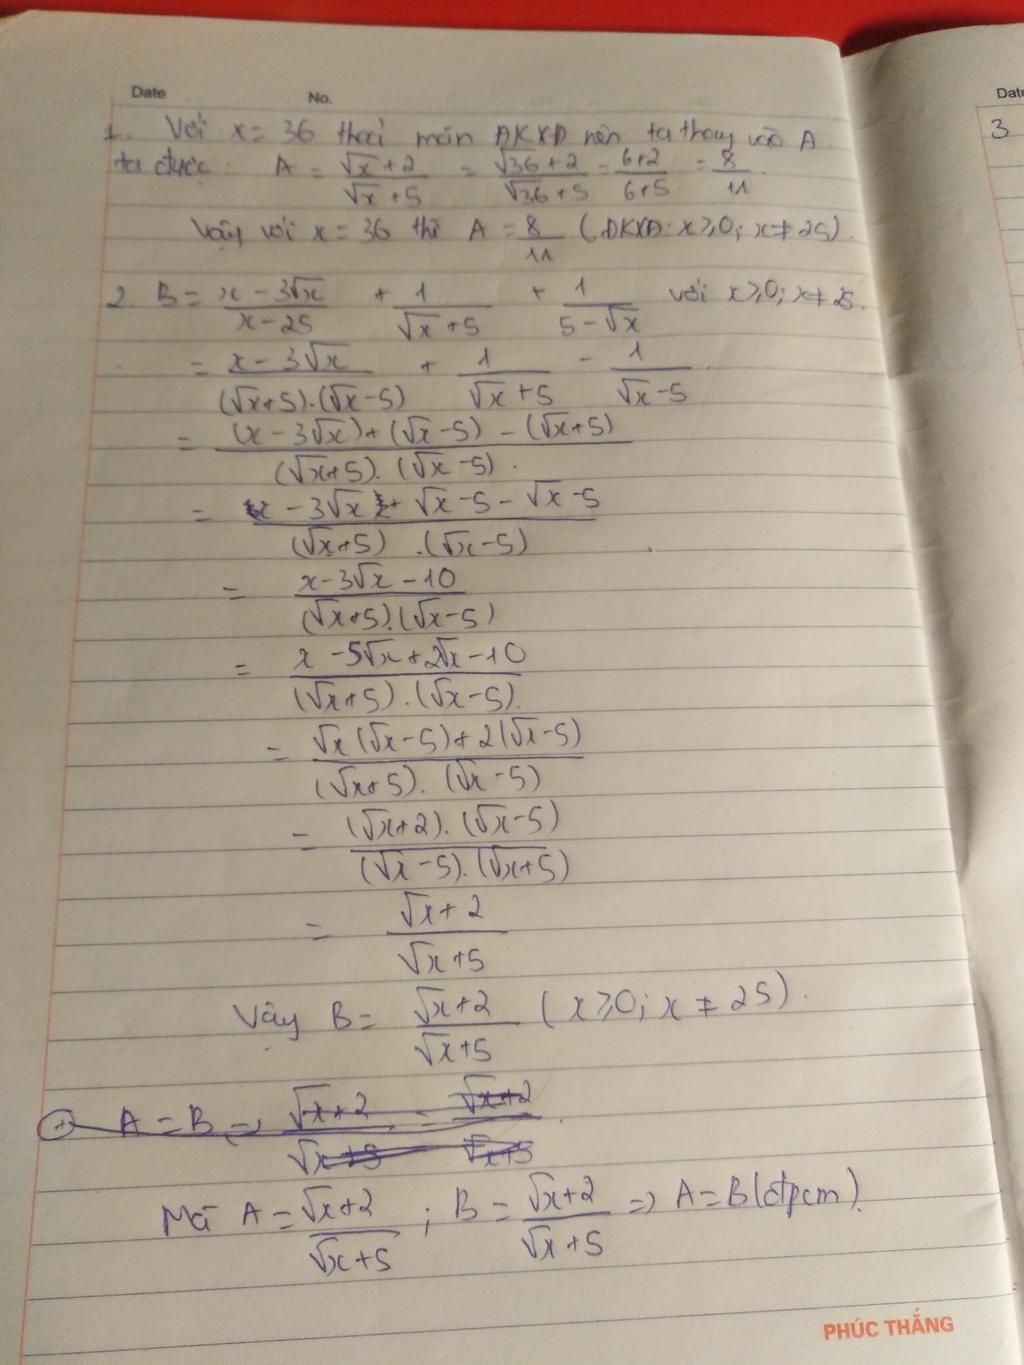 Date No.
1. Với x = 36 thoả mãn ĐKXĐ nên ta thay vào A
ta được: A = √x+2/√x+5 = √36+2/√36+5 = 6+2/6+5 = 8/11.
Vậy với x = 36 thì A = 8/11 (ĐKXĐ: x≥0; x≠25).
2. B = x-3√x/x-25 + 1/√x+5 + 1/5-√x với x≥0; x≠25.
= x-3√x/(√x+5).(√x-5) + 1/√x+5 - 1/√x-5.
= (x-3√x)+(√x-5)-(√x+5)/(√x+5).(√x-5).
= x-3√x+√x-5-√x-5/(√x+5).(√x-5)
= x-3√x-10/(√x+5).(√x-5)
= x-5√x+2√x-10/(√x+5).(√x-5).
= √x(√x-5)+2(√x-5)/(√x+5).(√x-5)
= (√x+2).(√x-5)/(√x-5).(√x+5)
= √x+2/√x+5
Vậy B = √x+2/√x+5 (x≥0; x≠25).
+ A = B => √x+2/√x+5 = √x+2/√x+5.
Mà A = √x+2/√x+5; B = √x+2/√x+5 => A = B (đpcm).
PHÚC THẮNG
Date
3